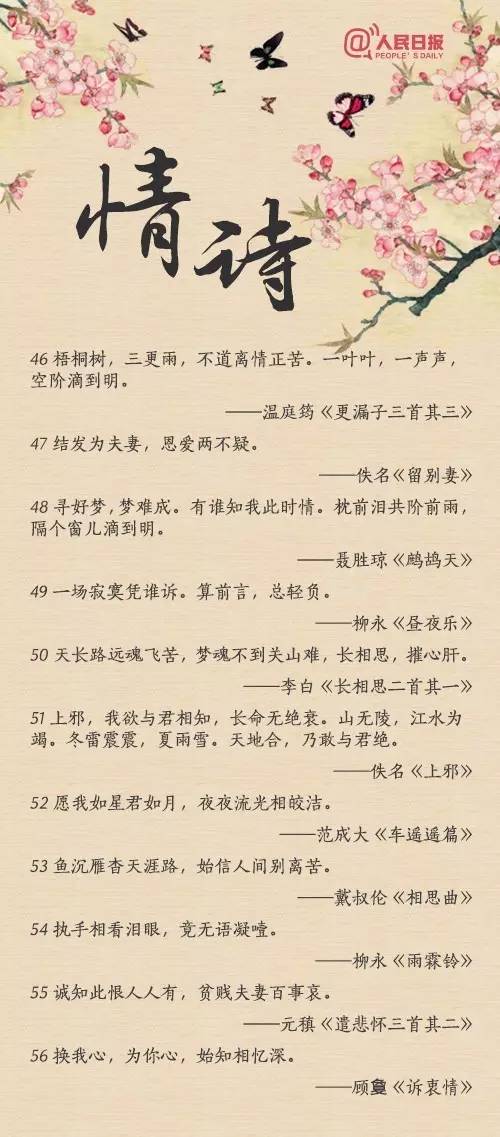 @人民日报
PEOPLE'S DAILY
情诗
46 梧桐树，三更雨，不道离情正苦。一叶叶，一声声，
空阶滴到明。
——温庭筠《更漏子三首其三》
47 结发为夫妻，恩爱两不疑。
——佚名《留别妻》
48 寻好梦，梦难成。有谁知我此时情。枕前泪共阶前雨，
隔个窗儿滴到明。
——聂胜琼《鹧鸪天》
49 一场寂寞凭谁诉。算前言，总轻负。
——柳永《昼夜乐》
50 天长路远魂飞苦，梦魂不到关山难，长相思，摧心肝。
——李白《长相思二首其一》
51 上邪，我欲与君相知，长命无绝衰。山无陵，江水为
竭。冬雷震震，夏雨雪。天地合，乃敢与君绝。
——佚名《上邪》
52 愿我如星君如月，夜夜流光相皎洁。
——范成大《车遥遥篇》
53 鱼沉雁杏天涯路，始信人间别离苦。
——戴叔伦《相思曲》
54 执手相看泪眼，竟无语凝噎。
——柳永《雨霖铃》
55 诚知此恨人人有，贫贱夫妻百事哀。
——元稹《遣悲怀三首其二》
56 换我心，为你心，始知相忆深。
——顾夐《诉衷情》